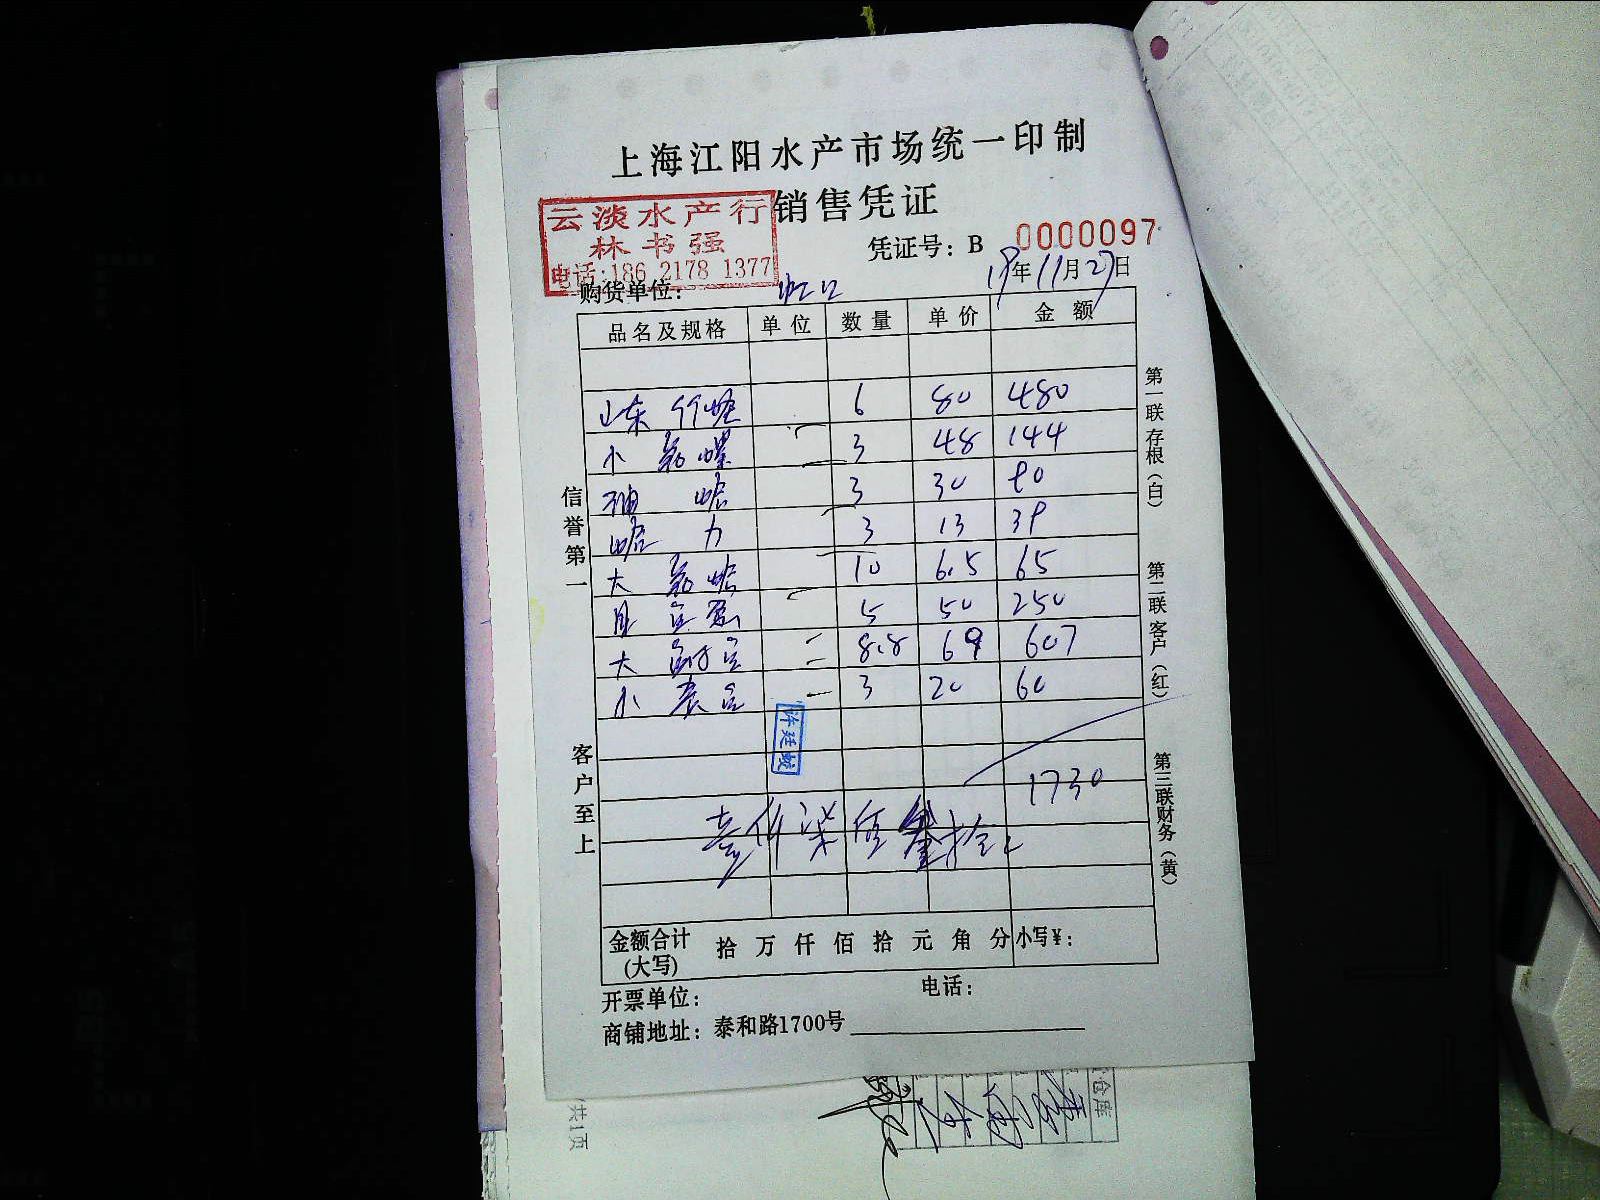 上海江阳水产市场统一印制
销售凭证
云淡水产行
林书强
电话:186 2178 1377
凭证号：B 0000097
19年11月27日
购货单位： 虹口
品名及规格 单位 数量 单价 金额
山东 竹蛏 6 80 480
小 螺 3 48 144
3 30 90
蛤 力 3 13 39
大 10 6.5 65
5 50 250
大 8.8 69 607
小 3 20 60
许廷蛟
1730
壹仟柒佰叁拾
金额合计(大写) 拾 万 仟 佰 拾 元 角 分 小写¥：
开票单位： 电话：
商铺地址：泰和路1700号
信誉第一
客户至上
第一联 存根（白）
第二联 客户（红）
第三联 财务（黄）
仓库
共1页